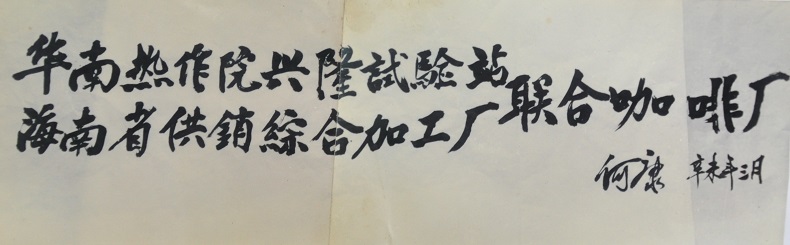 华南热作院兴隆試驗站
海南省供銷綜合加工厂
联合咖啡厂
何康 辛未年三月